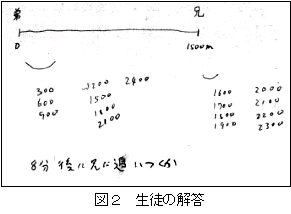 弟 兄
0 1500m
300 1200 2400
600 1500
900 1800
2100
1600 2000
1700 2100
1800 2200
1900 2300
8分後に兄に追いつくか
図2 生徒の解答